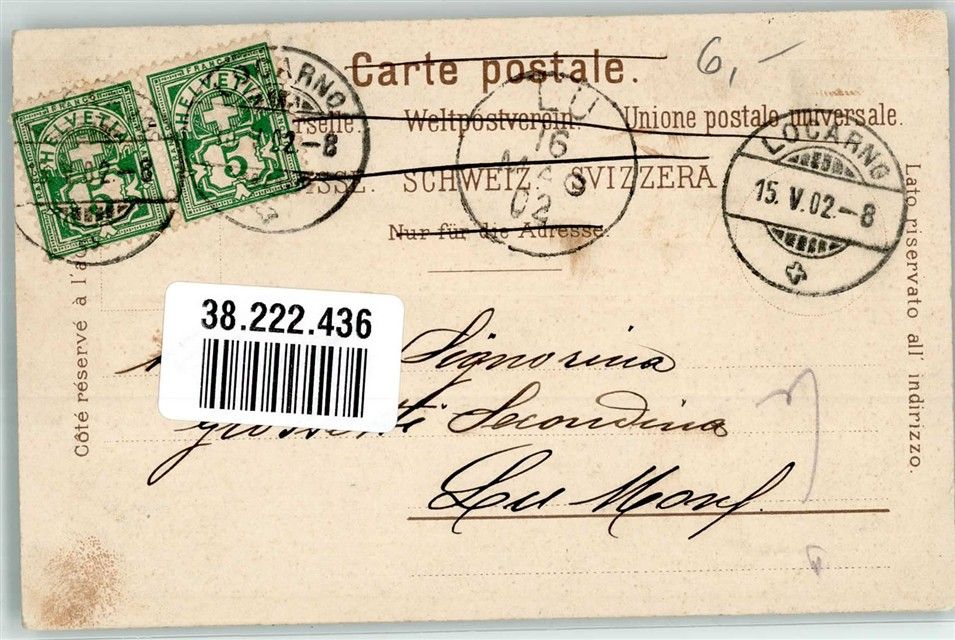 Carte postale.
6,-
rselle. Weltpostverein. Unione postale universale.
SSE. SCHWEIZ. SVIZZERA
Nur für die Adresse.
FRANCO
HELVETIA
5
FRANCO
HELVETIA
5
LOCARNO
02.-8
02.-8
LÜ
16
02
LOCARNO
15. V. 02.-8
Côté réservé à l'ad
Lato riservato all' indirizzo.
38.222.436
Signorina
Secondina
Lü